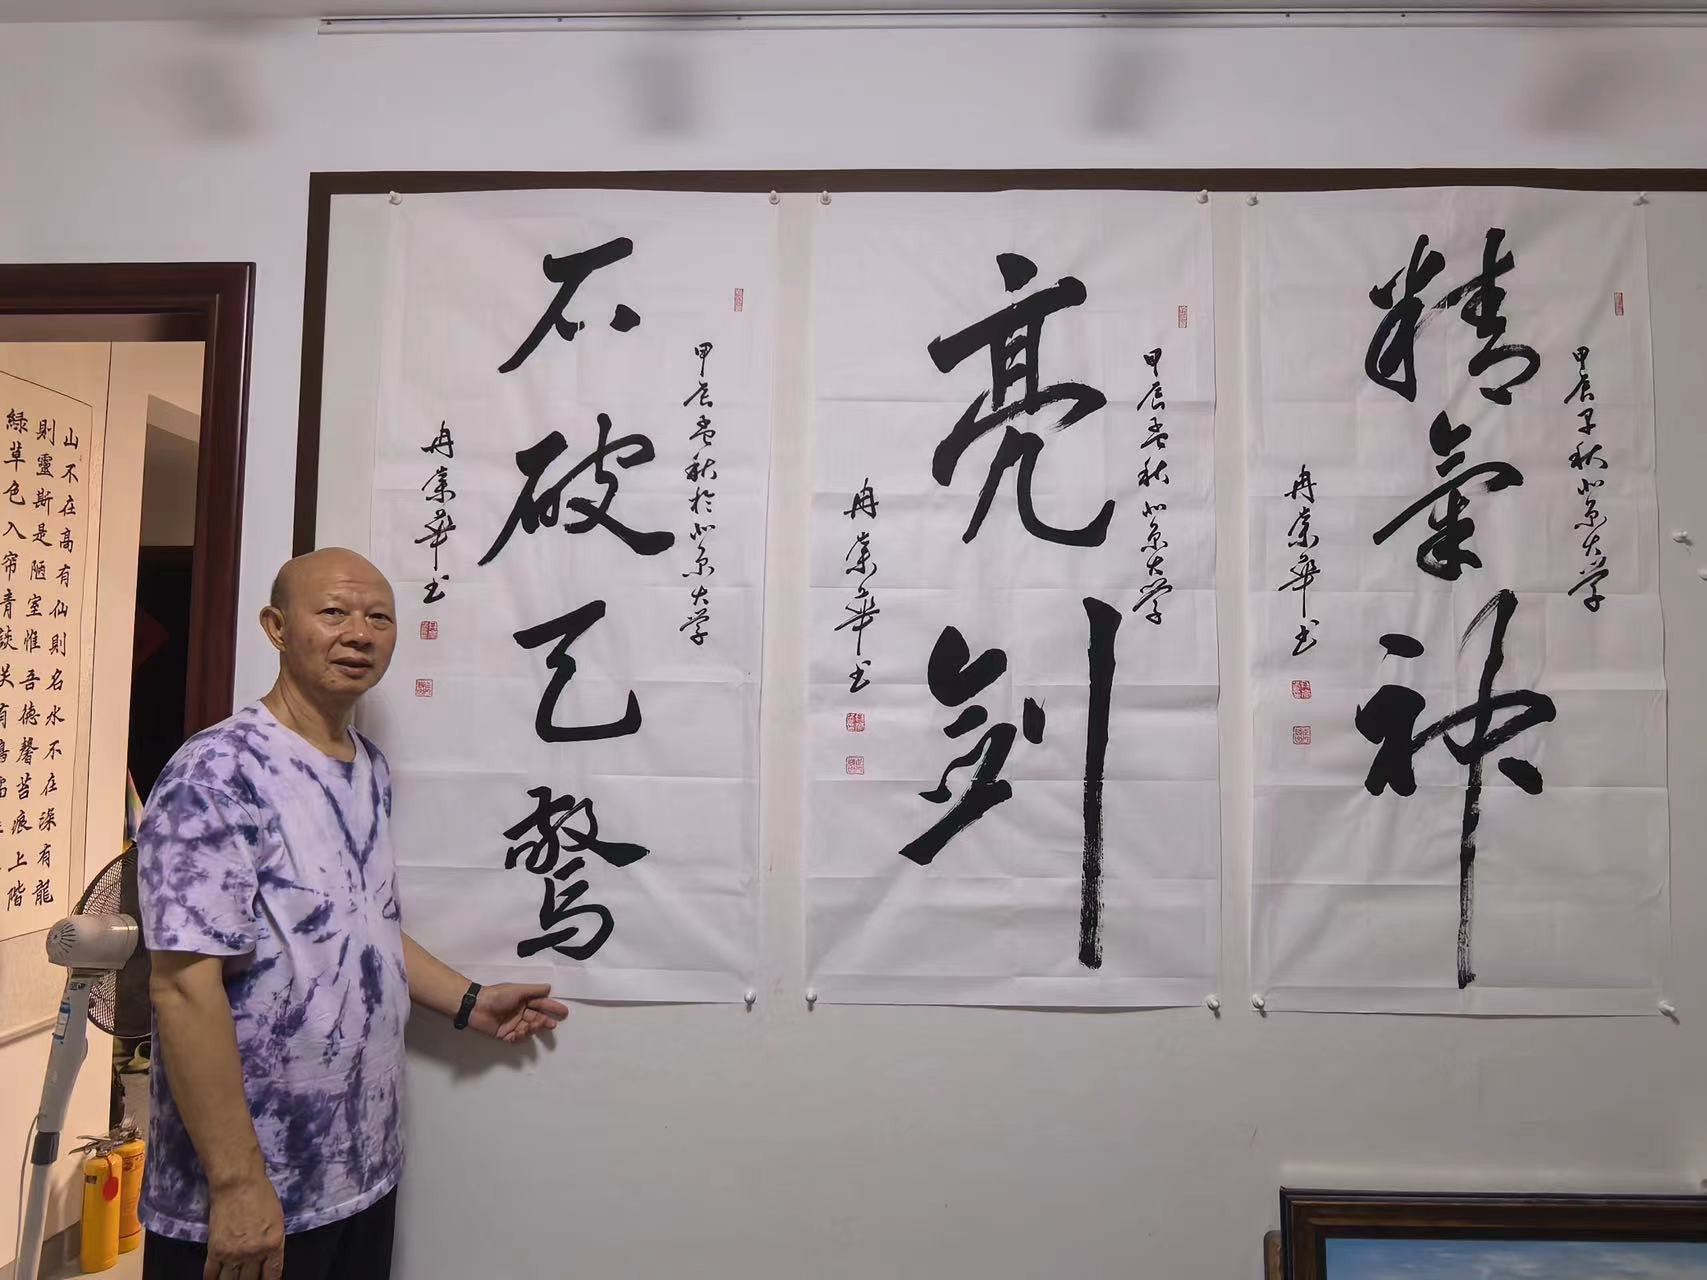 甲辰早秋北京大学
精氣神
冉崇華书
甲辰孟秋北京大学
亮剑
冉崇華书
甲辰孟秋於北京大学
石破天驚
冉崇華书
山不在高有仙則名水不在深有龍
則靈斯是陋室惟吾德馨苔痕上階
緑草色入帘青談笑有鴻儒